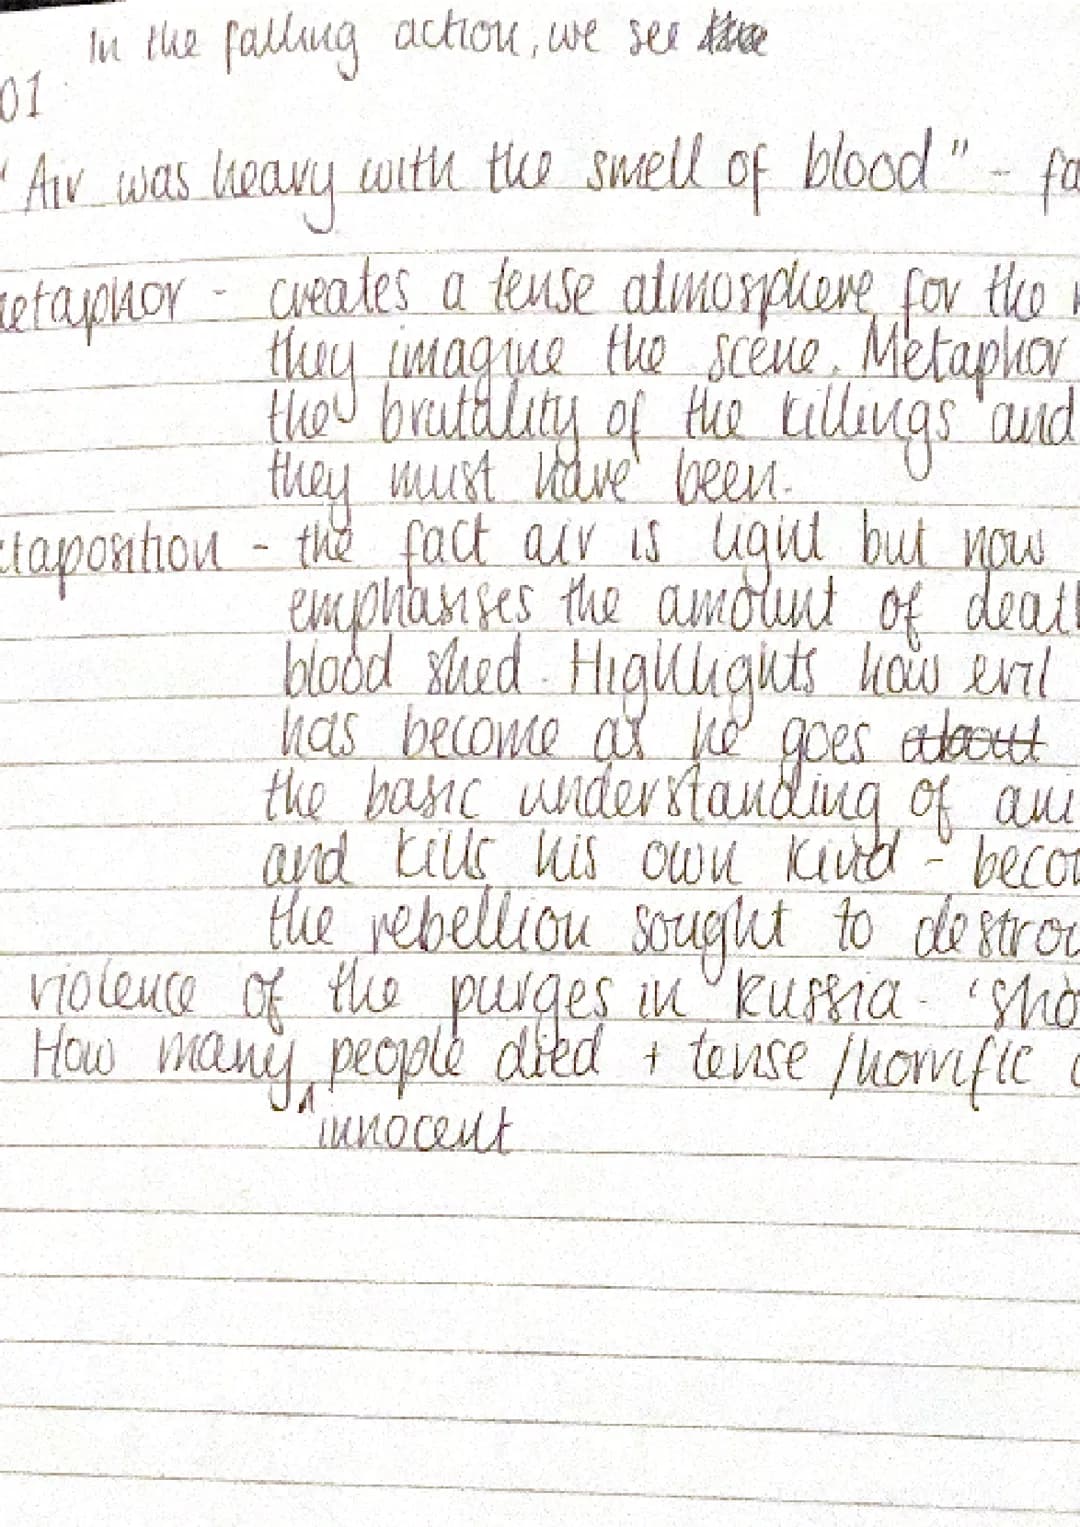 In the falling action, we see
01
"Air was heavy with the smell of blood" - fa
etaphor - creates a tense atmosphere for the
they imagine the scene. Metaphor
the brutality of the killings and
they must have been.
taposition - the fact air is light but now
emphasises the amount of deat
blood shed. Highlights how evil
has become as he goes about
the basic understanding of ani
and kills his own kind - beco
the rebellion sought to destro
violence of the purges in Russia. 'sho
How many people died + tense / horrific
innocent